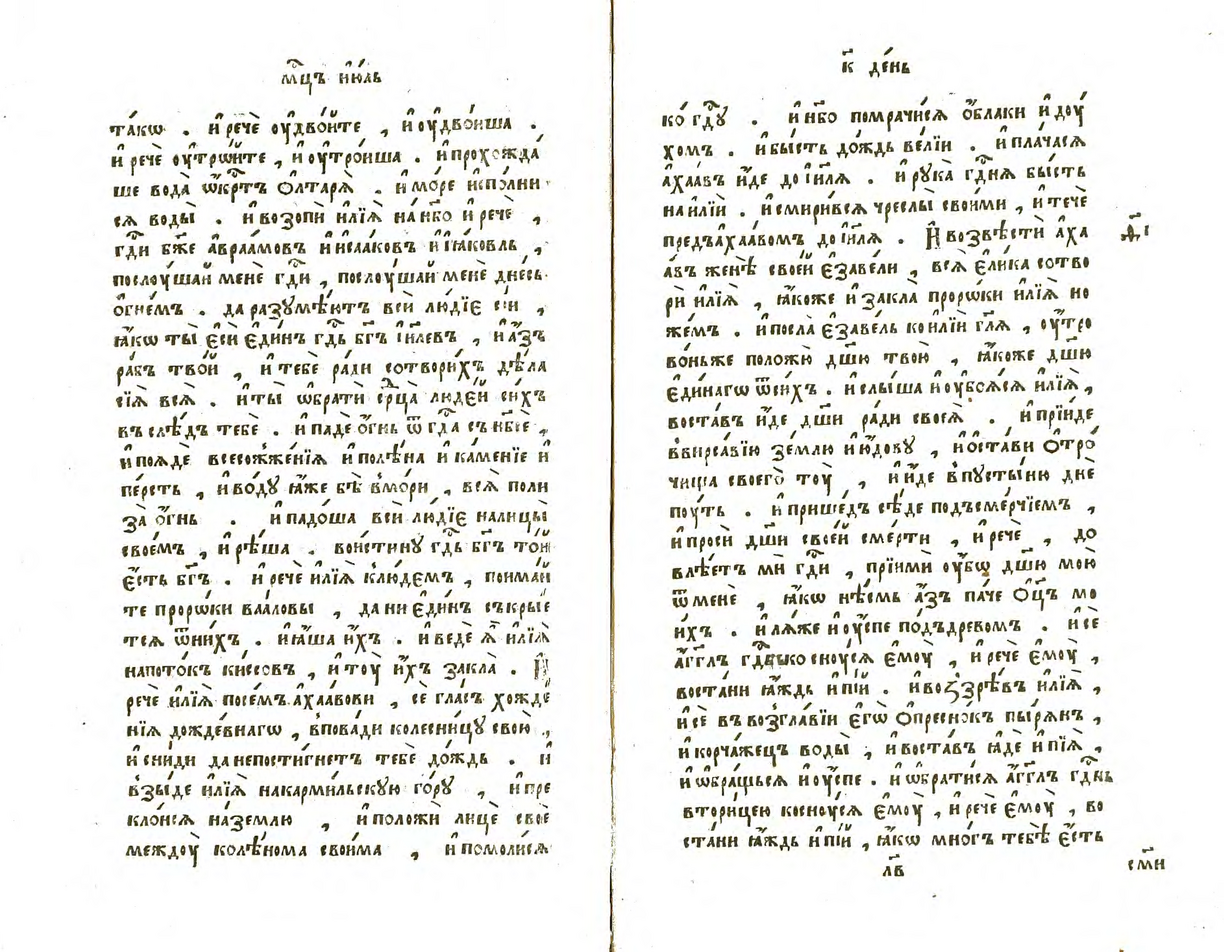 мⷭ҇цъ ию́ль
та́кѡ . и҆ речѐ ᲂу҆дво́йте , и҆ ᲂу҆дво́иша .
и҆ речѐ ᲂу҆трѡ́ите , и҆ ᲂу҆тро́иша . и҆ прохожда́
ше вода̀ ѡ҆́крⷭ҇тъ ѻ҆лтарѧ̀ . и҆ мо́ре и҆спо́лни
сѧ воды̀ . и҆ возопѝ и҆лїѧ̀ на нб҃о и҆ речѐ ,
гдⷭ҇и бж҃е а҆враа́мовъ и҆ и҆саа́ковъ и҆ і҆а́ковль ,
послꙋ́шай менѐ гдⷭ҇и , послꙋ́шай менѐ дне́сь
ѻ҆гне́мъ . да разꙋмѣ́ютъ всѝ лю́дїє сїѝ ,
ꙗ҆́кѡ ты̀ є҆сѝ є҆ди́нъ гдⷭ҇ь бг҃ъ і҆и҃левъ , и҆ а҆́зъ
ра́бъ тво́й , и҆ тебє̀ ра́ди сотвори́хъ дѣла̀
сїѧ̀ всѧ̀ . и҆ ты̀ ѡ҆братѝ срⷣца люде́й си́хъ
въ слѣ́дъ тебѐ . и҆ падѐ ѻ҆́гнь ѿ гдⷭ҇а съ нб҃сѐ ,
и҆ поѧдѐ всесожже́нїѧ и҆ полѣ́на и҆ ка́менїе и҆
пе́рсть , и҆ во́дꙋ ꙗ҆́же бѣ̀ в мо́ри , всѧ̀ поли
за̀ ѻ҆́гнь . и҆ падо́ша всѝ лю́дїє на лицы̀
свое́мъ , и҆ рѣ́ша . вои́стинꙋ гдⷭ҇ь бг҃ъ то́й
є҆́сть бг҃ъ . и҆ речѐ и҆лїѧ̀ к лю́демъ , пои́май
те проро́ки ваа́ловы , да ни є҆ди́нъ съкры́е
тсѧ ѿ ни́хъ . и҆ ꙗ҆́ша и҆́хъ . и҆ ведѐ ѧ҆̀ и҆лїѧ̀
на пото́къ ки́ссовъ , и҆ тꙋ̀ и҆́хъ закла̀ . И҆
речѐ и҆лїѧ̀ посе́мъ а҆хаа́вови , сѐ гла́съ хожде́
нїѧ дожде́внагѡ , впова́ди колесни́цꙋ свою̀ ,
и҆ сни́ди да не пости́гнетъ тебѐ до́ждь . и҆
взы́де и҆лїѧ̀ на карми́льскꙋю го́рꙋ , и҆ пре
кло́нсѧ на́ землю , и҆ положѝ лицѐ своѐ
междꙋ̀ колѣ́нома свои́ма , и҆ помоли́сѧ
к҃ де́нь
ко̀ гдⷭ҇ꙋ . и҆ нб҃о помрачи́сѧ ѻ҆́блаки и҆ дꙋ́
хомъ . и҆ бы́сть до́ждь ве́лїи . и҆ пла́часѧ
а҆хаа́въ и҆́де до і҆и҃лѧ . и҆ рꙋка̀ гдⷭ҇нѧ бы́сть
на и҆лїѝ . и҆ смири́всѧ чре́слы свои́ми , и҆ течѐ
предъ а҆хаа́вомъ до і҆и҃лѧ . И҆ возвѣстѝ а҆ха
а҆́въ женѣ̀ свое́й є҆заве́ли , всѧ̀ є҆ли́ка сотво
рѝ и҆лїѧ̀ , ꙗ҆́коже и҆ закла̀ проро́ки и҆лїѧ̀ но
же́мъ . и҆ посла̀ є҆заве́ль ко и҆лїѝ гл҃ѧ , ᲂу҆́тро
во́ньже положю̀ дш҃ю твою̀ , ꙗ҆́коже дш҃ю
є҆ди́нагѡ ѿ си́хъ . и҆ слы́ша и҆ ᲂу҆боѧ́сѧ и҆лїѧ̀ ,
воста́въ и҆́де дш҃и ра́ди своеѧ̀ . и҆ прїи́де
в вирсаві́ю зе́млю и҆ю́довꙋ , и҆ ѡ҆ста́ви ѻ҆тро́
чища своего̀ тꙋ̀ , и҆ и҆́де в пꙋсты́ню днѐ
пꙋ́ть . и҆ прише́дъ сѣ́де подъ сме́рчїемъ ,
и҆ просѝ дш҃и свое́й сме́рти , и҆ речѐ , до
влѣ́етъ мѝ гдⷭ҇и , прїимѝ ᲂу҆̀бѡ дш҃ю мою̀
ѿ менѐ , ꙗ҆́кѡ нѣ́смь а҆́зъ па́че ѻ҆ц҃ъ мо
и́хъ . и҆ лѧ́же и҆ ᲂу҆́спе подъ дре́вомъ . и҆ сѐ
а҆́гг҃лъ гдⷭ҇ь коснꙋ́сѧ є҆мꙋ̀ , и҆ речѐ є҆мꙋ̀ ,
воста́ни ꙗ҆́ждь и҆ пі́й . и҆ воззрѣ́въ и҆лїѧ̀ ,
и҆ сѐ въ возгла́вїи є҆гѡ̀ ѻ҆прѣсно́къ пырѧ́нъ ,
и҆ корча́жецъ воды̀ , и҆ воста́въ ꙗ҆дѐ и҆ пїѧ̀ ,
и҆ ѡ҆бра́щьсѧ и҆ ᲂу҆́спе . и҆ ѡ҆брати́сѧ а҆́гг҃лъ гдⷭ҇нь
втори́цею коснꙋ́сѧ є҆мꙋ̀ , и҆ речѐ є҆мꙋ̀ , во
ста́ни ꙗ҆́ждь и҆ пі́й , ꙗ҆́кѡ мно́гъ тебѣ̀ є҆́сть
лв